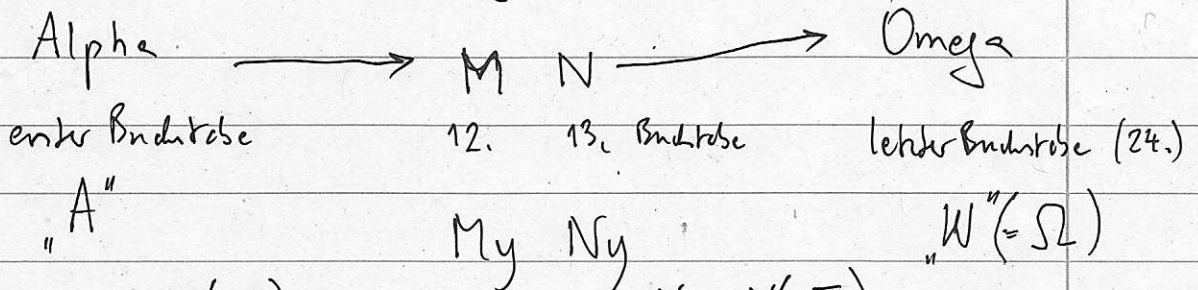 Alpha → M N → Omega
erster Buchstabe 12. 13. Buchstabe letzter Buchstabe (24.)
„A" My Ny „W"(= Ω)